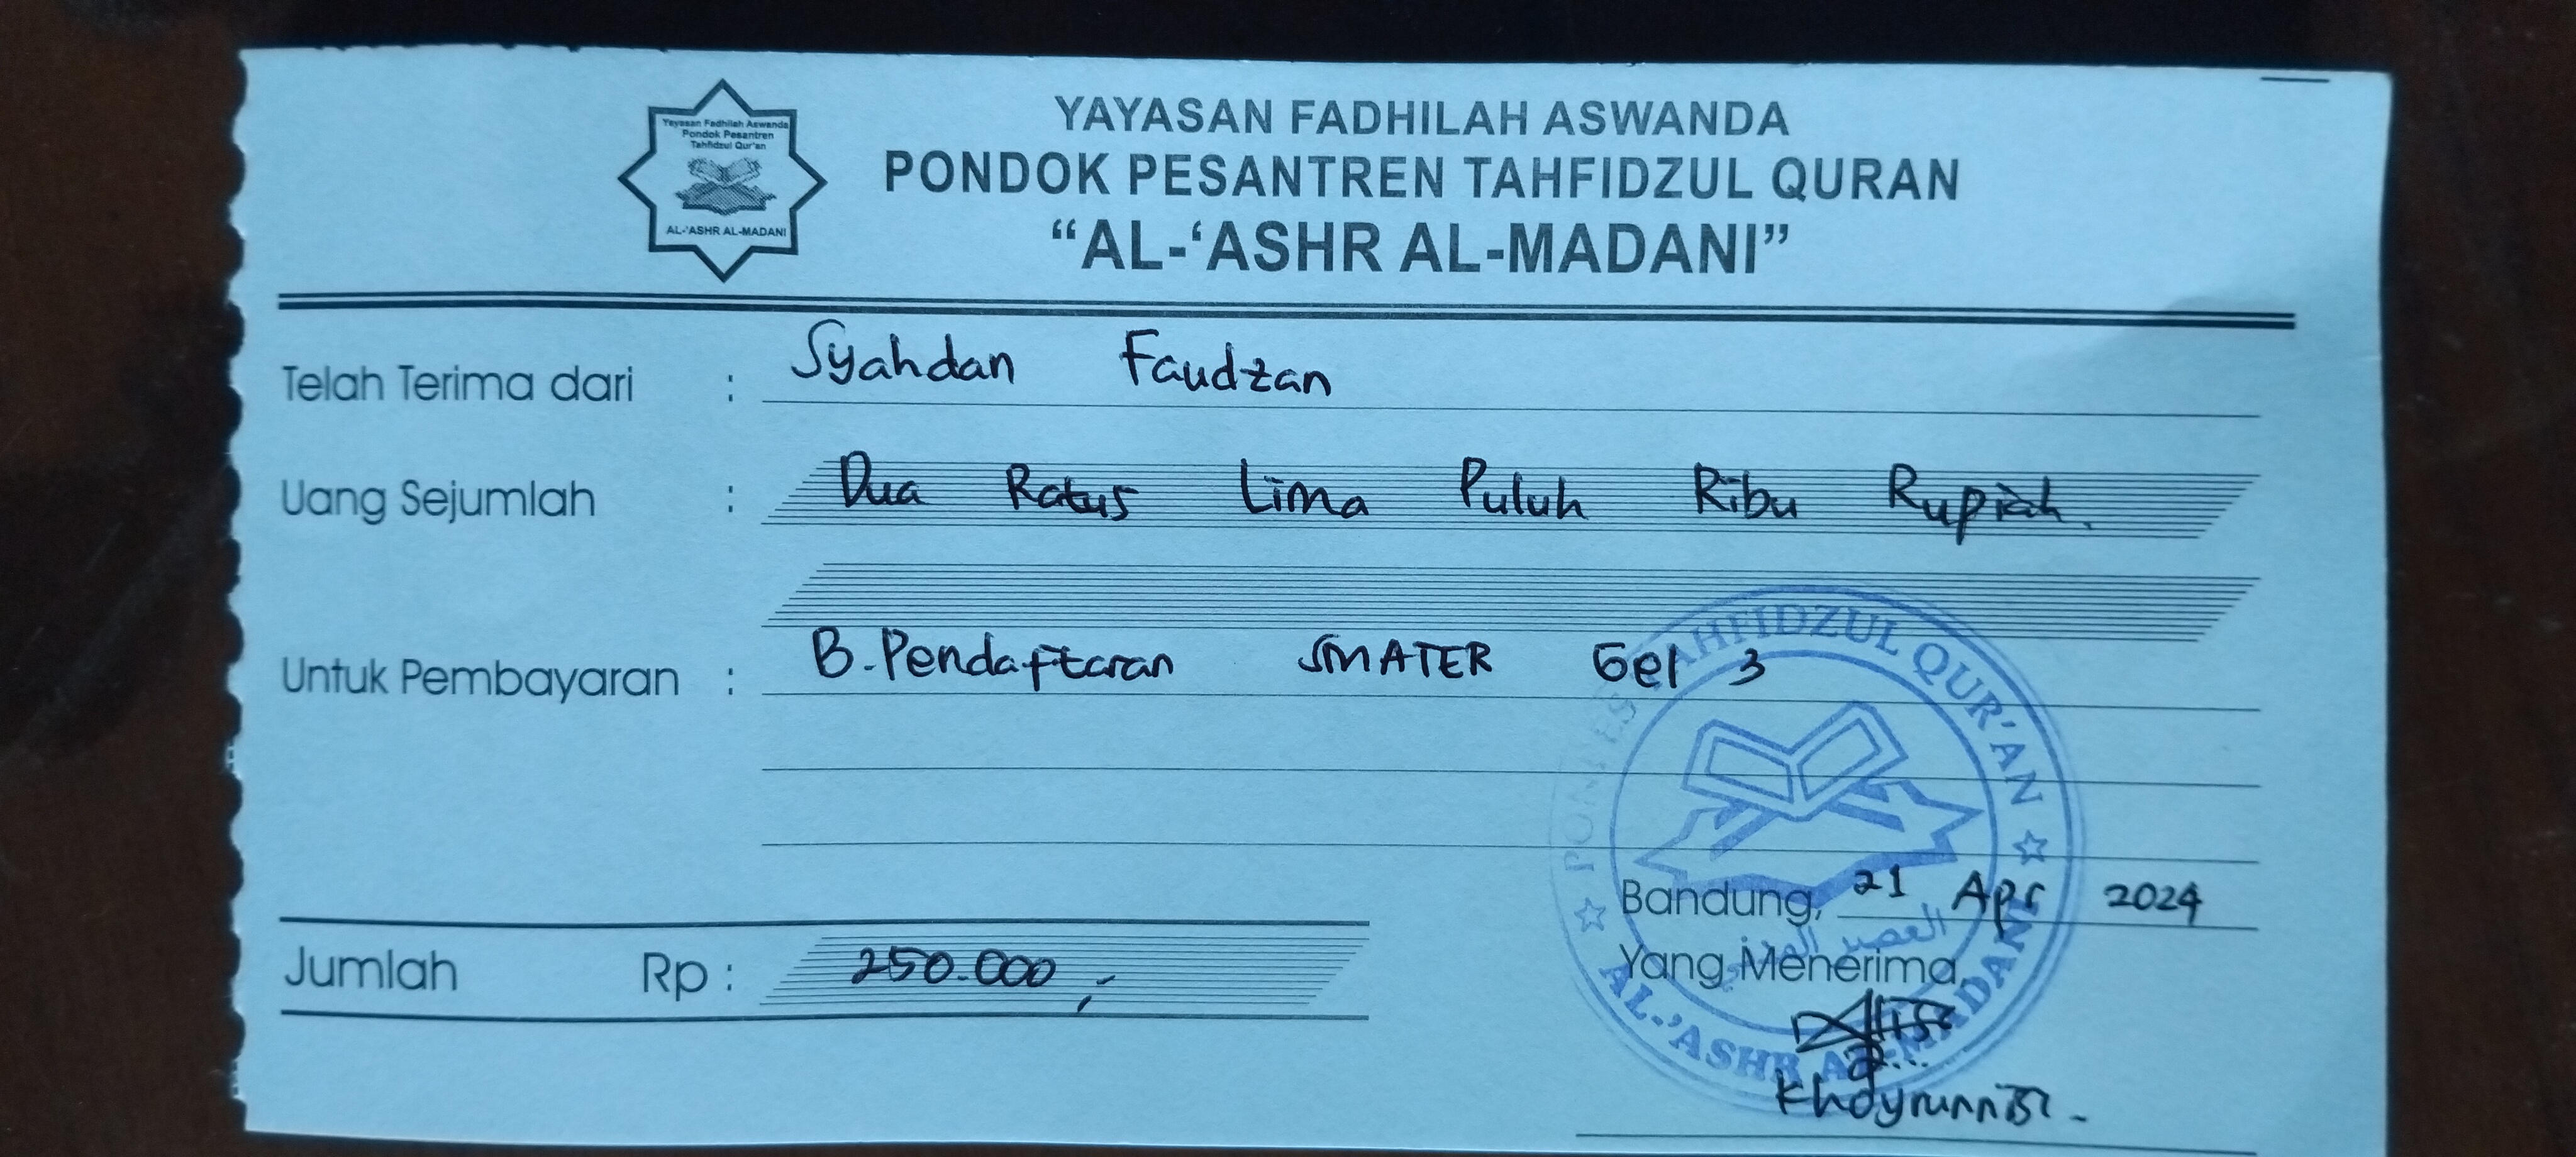 Yayasan Fadhilah Aswanda
Pondok Pesantren
Tahfidzul Qur'an
AL-'ASHR AL-MADANI
YAYASAN FADHILAH ASWANDA
PONDOK PESANTREN TAHFIDZUL QURAN
“AL-‘ASHR AL-MADANI”
Telah Terima dari : Syahdan Faudzan
Uang Sejumlah : Dua Ratus Lima Puluh Ribu Rupiah.
Untuk Pembayaran : B. Pendaftaran SMATER Gel 3
Jumlah Rp : 250.000,-
Bandung, 21 Apr 2024
Yang Menerima
PONPES TAHFIDZUL QUR'AN
AL-'ASHR AL-MADANI